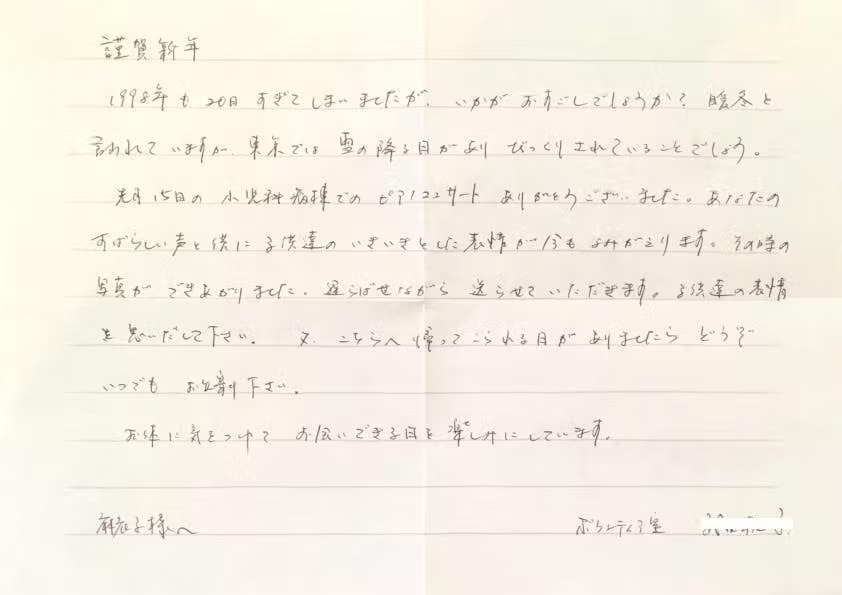 謹賀新年
1998年も20日すぎてしまいましたが、いかがおすごしでしょうか？暖冬と
言われていますが、東京では雪の降る日がありびっくりされていることでしょう。
先月15日の小児科病棟でのピアノコンサートありがとうございました。あなたの
すばらしい声と供に子供達のいきいきとした表情が今もよみがえります。その時の
写真ができあがりました。遅らばせながら送らせていただきます。子供達の表情
を思いだして下さい。又、こちらへ帰ってこられる日がありましたらどうぞ
いつでもお立寄り下さい。
お体に気をつけてお会いできる日を楽しみにしています。
麻衣子様へ ボランティア室